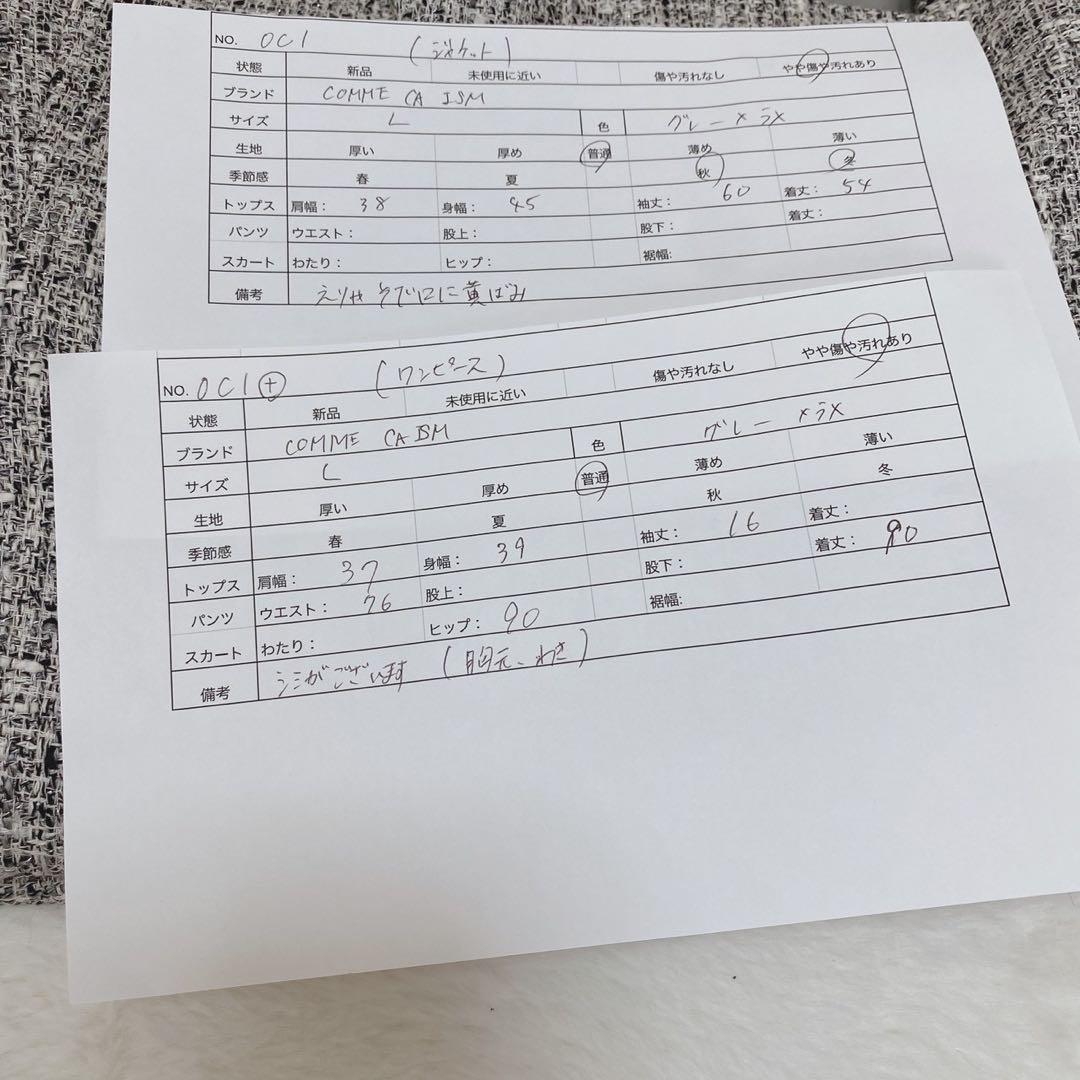 NO. OC1 (ジャケット)
状態 新品 未使用に近い 傷や汚れなし やや傷や汚れあり
ブランド COMME CA ISM
サイズ L 色 グレー×ラメ
生地 厚い 厚め 普通 薄め 薄い
季節感 春 夏 秋 冬
トップス 肩幅: 38 身幅: 45 袖丈: 60 着丈: 54
パンツ ウエスト: 股上: 股下: 着丈:
スカート わたり: ヒップ: 裾幅:
備考 えりやそで口に黄ばみ
NO. OC1+ (ワンピース)
状態 新品 未使用に近い 傷や汚れなし やや傷や汚れあり
ブランド COMME CA ISM
サイズ L 色 グレー ×ラメ
生地 厚い 厚め 普通 薄め 薄い
季節感 春 夏 秋 冬
トップス 肩幅: 37 身幅: 39 袖丈: 16 着丈:
パンツ ウエスト: 76 股上: 股下: 着丈: 90
スカート わたり: ヒップ: 90 裾幅:
備考 シミがございます (胸元、わき)